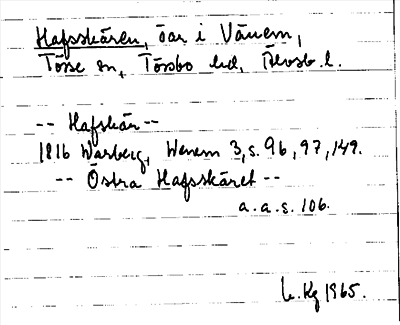 Hafsskären, öar i Vänern,
Tösse sn, Tössbo hd, Älvsb. l.
-- Hafskär --
1816 Warberg, Wenern 3, s. 96, 97, 149.
-- Östra Hafsskäret --
a. a. s. 106.
Kg 1965.